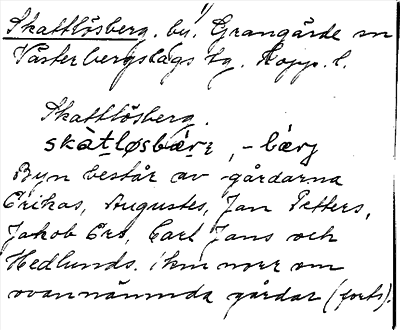 Skattlösberg. by. Grangärde sn
Västerbergslags tg. Kopp. l.
Skattlösberg.
skàtløsbærɛ, -bærj
Byn består av gårdarna
Erikas, Augustes, Jan Petters,
Jakob Ers, Carl Jans och
Hedlunds. 1 km norr om
ovannämnda gårdar (forts).